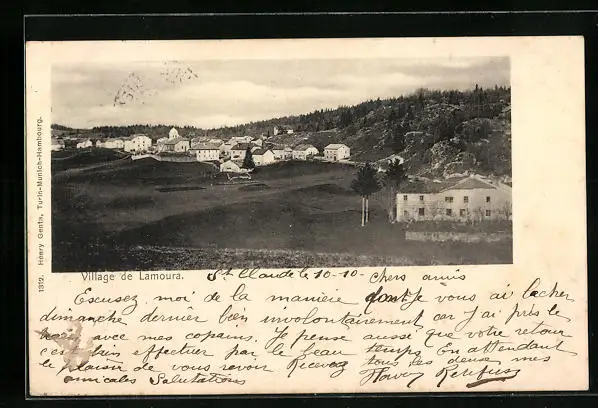 1312. Héliry Genta, Turin-Munich-Hambourg.
Village de Lamoura.
St Claude le 10-10- chers amis
Escusez moi de la manieie dont je vous ai lacher
dimanche dernier bien involontairement car j'ai pris le
avec mes copains. Je pense aussi que votre retour
c'est bien effectuer par le beau temps En attendant
le plaisir de vous revoir Recevez tous les deux mes
amicales Salutations